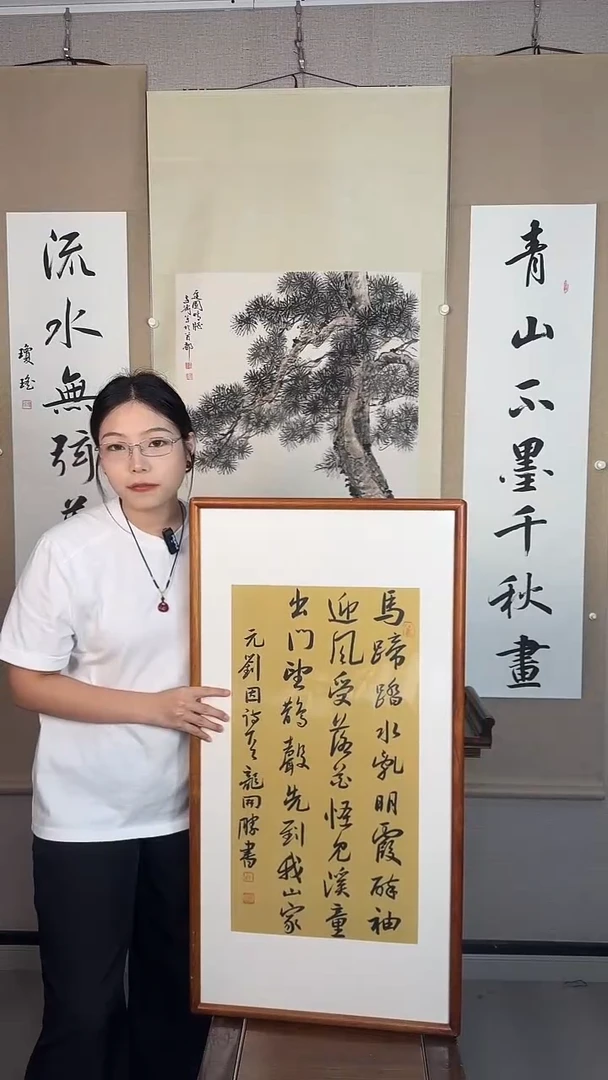 青山不墨千秋畫
流水無弦
瓊瑤
馬蹄踏水亂明霞醉袖
迎風受落花怪見溪童
出門望鵲聲先到我山家
元劉因詩 龍開勝書